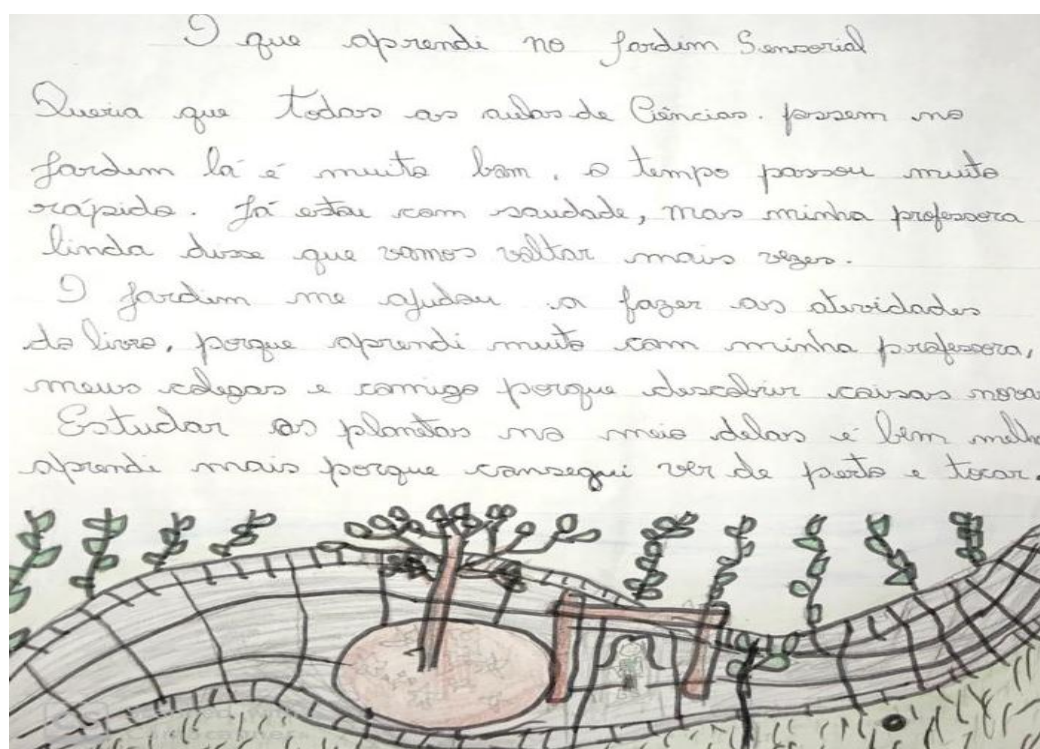 O que aprendi no Jardim Sensorial
Queria que todas as aulas de Ciências. fossem no
Jardim lá é muito bom, o tempo passou muito
rápido. Já estou com saudade, mas minha professora
linda disse que vamos voltar mais vezes.
O Jardim me ajudou a fazer as atividades
do livro, porque aprendi muito com minha professora,
meus colegas e comigo porque descobrir coisas novas
Estudar as plantas no meio delas é bem melho
aprendi mais porque consegui ver de perto e tocar.
CamScanner